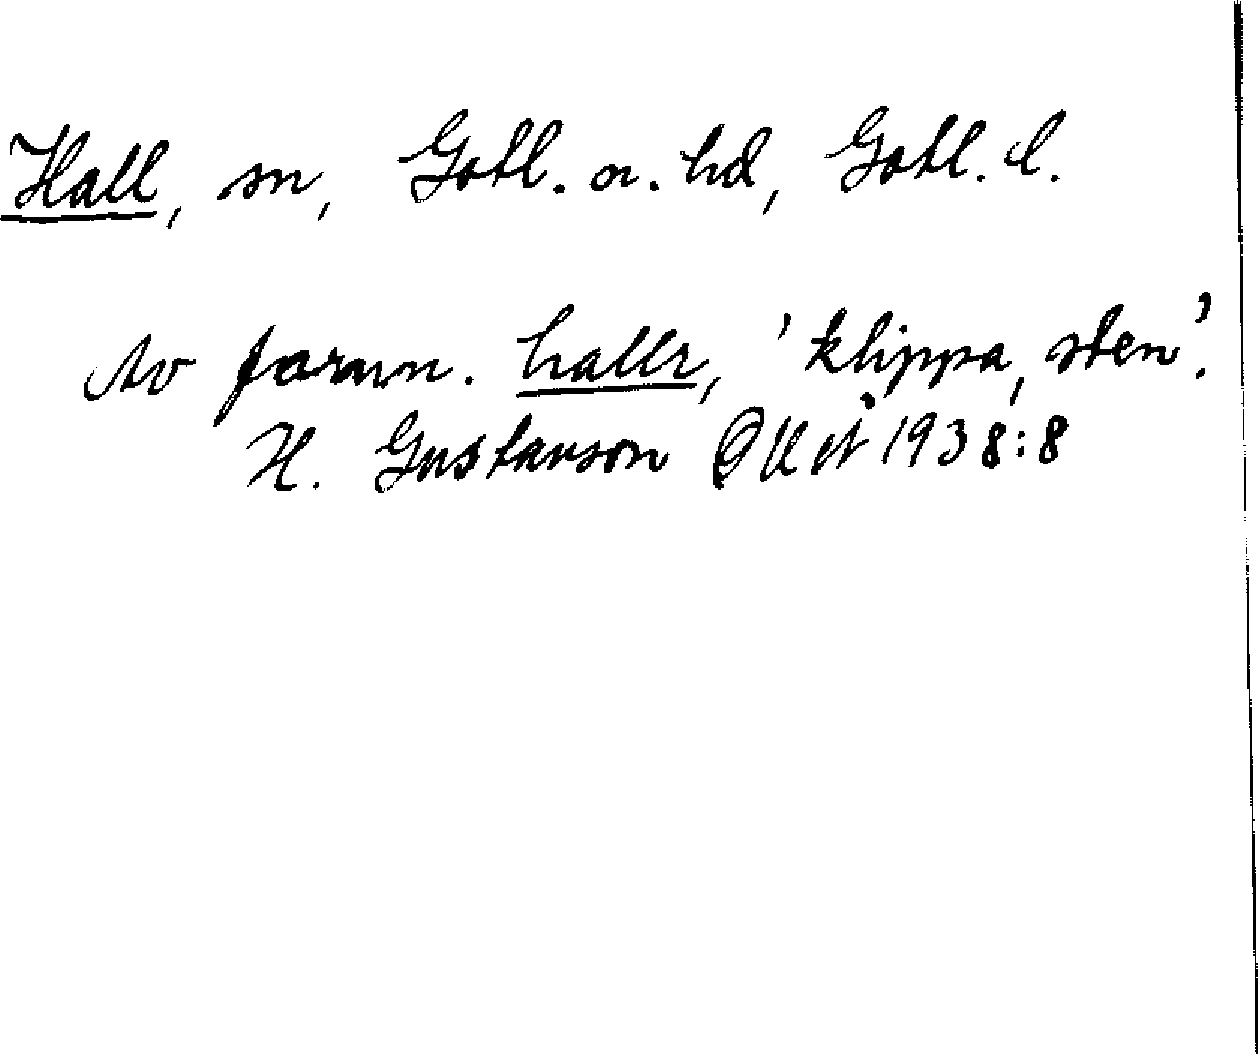 Hall, sn, Gotl. n. hd, Gotl. l.
Av fornvn. hallr, 'klippa, sten'.
H. Gustavson 1938:8